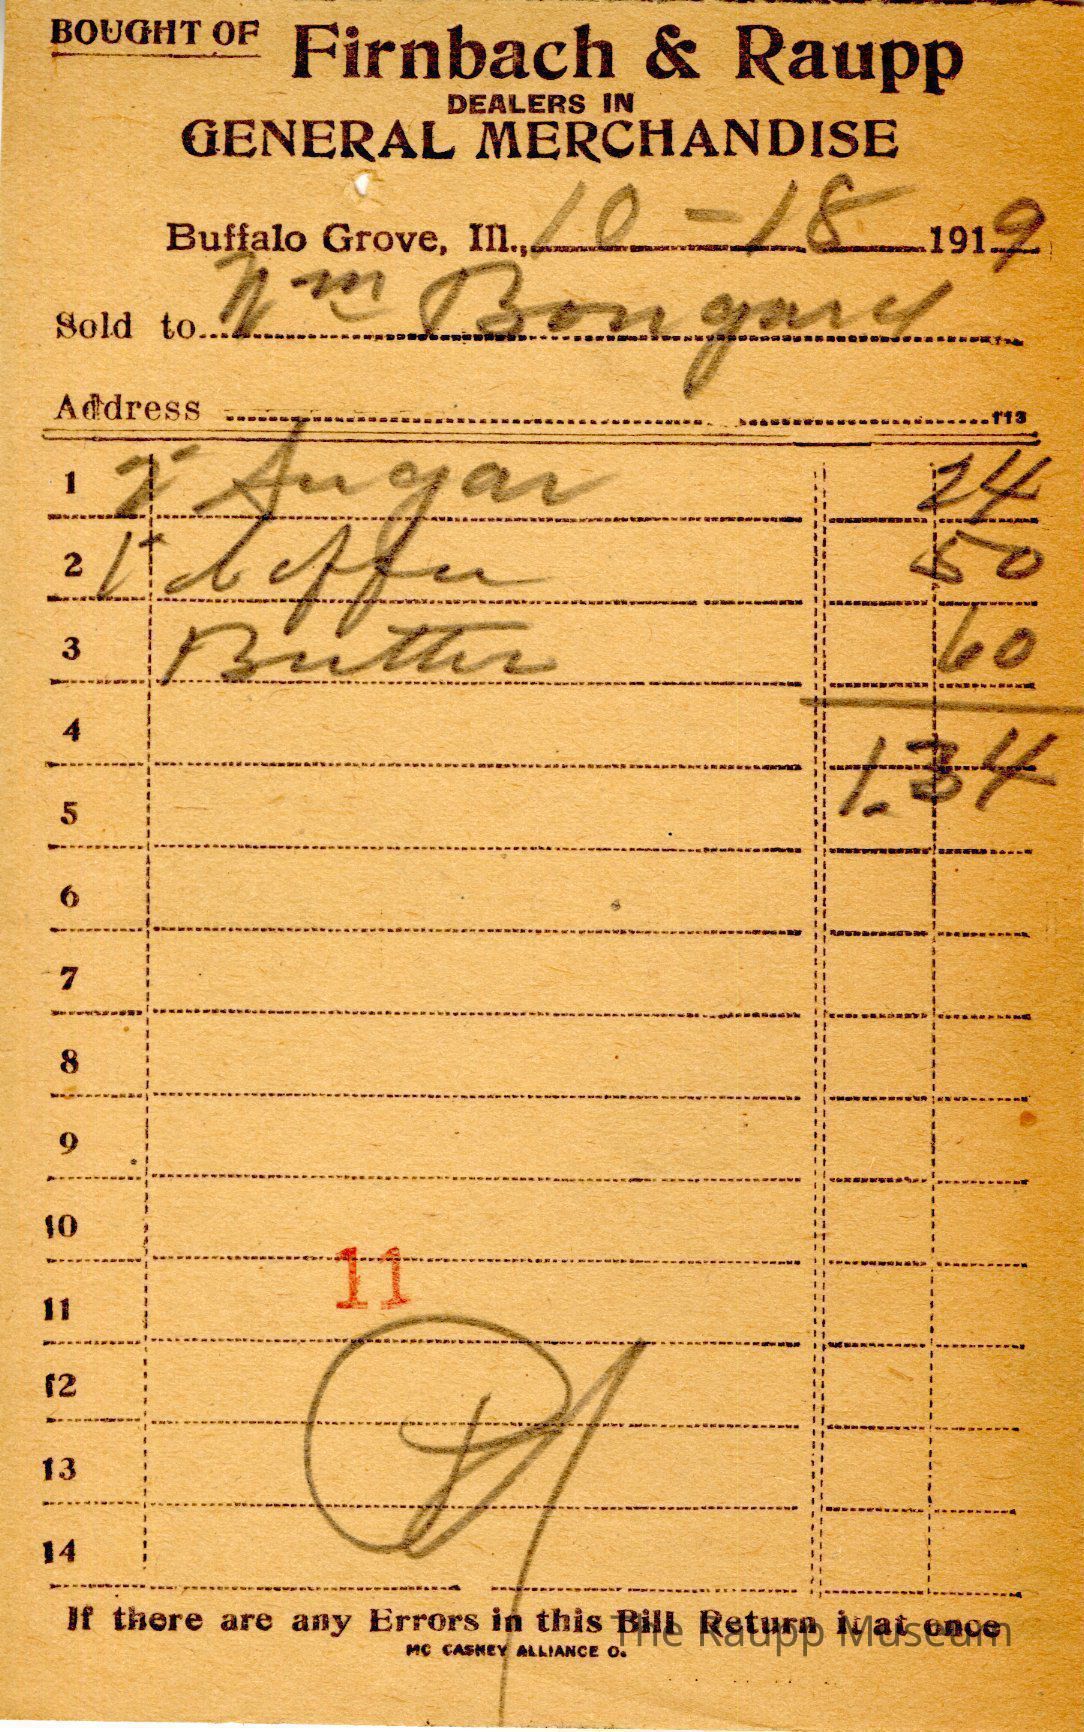 BOUGHT OF Firnbach & Raupp
DEALERS IN
GENERAL MERCHANDISE
Buffalo Grove, Ill., 10-18 1919
Sold to Wm Bongard
Address 113
1 2 Sugar 24
2 1 Coffee 50
3 Butter 60
4
1.34
5
6
7
8
9
10
11
11
12
13
14
If there are any Errors in this Bill Return it at once
The Raupp Museum
MC CASKEY ALLIANCE O.